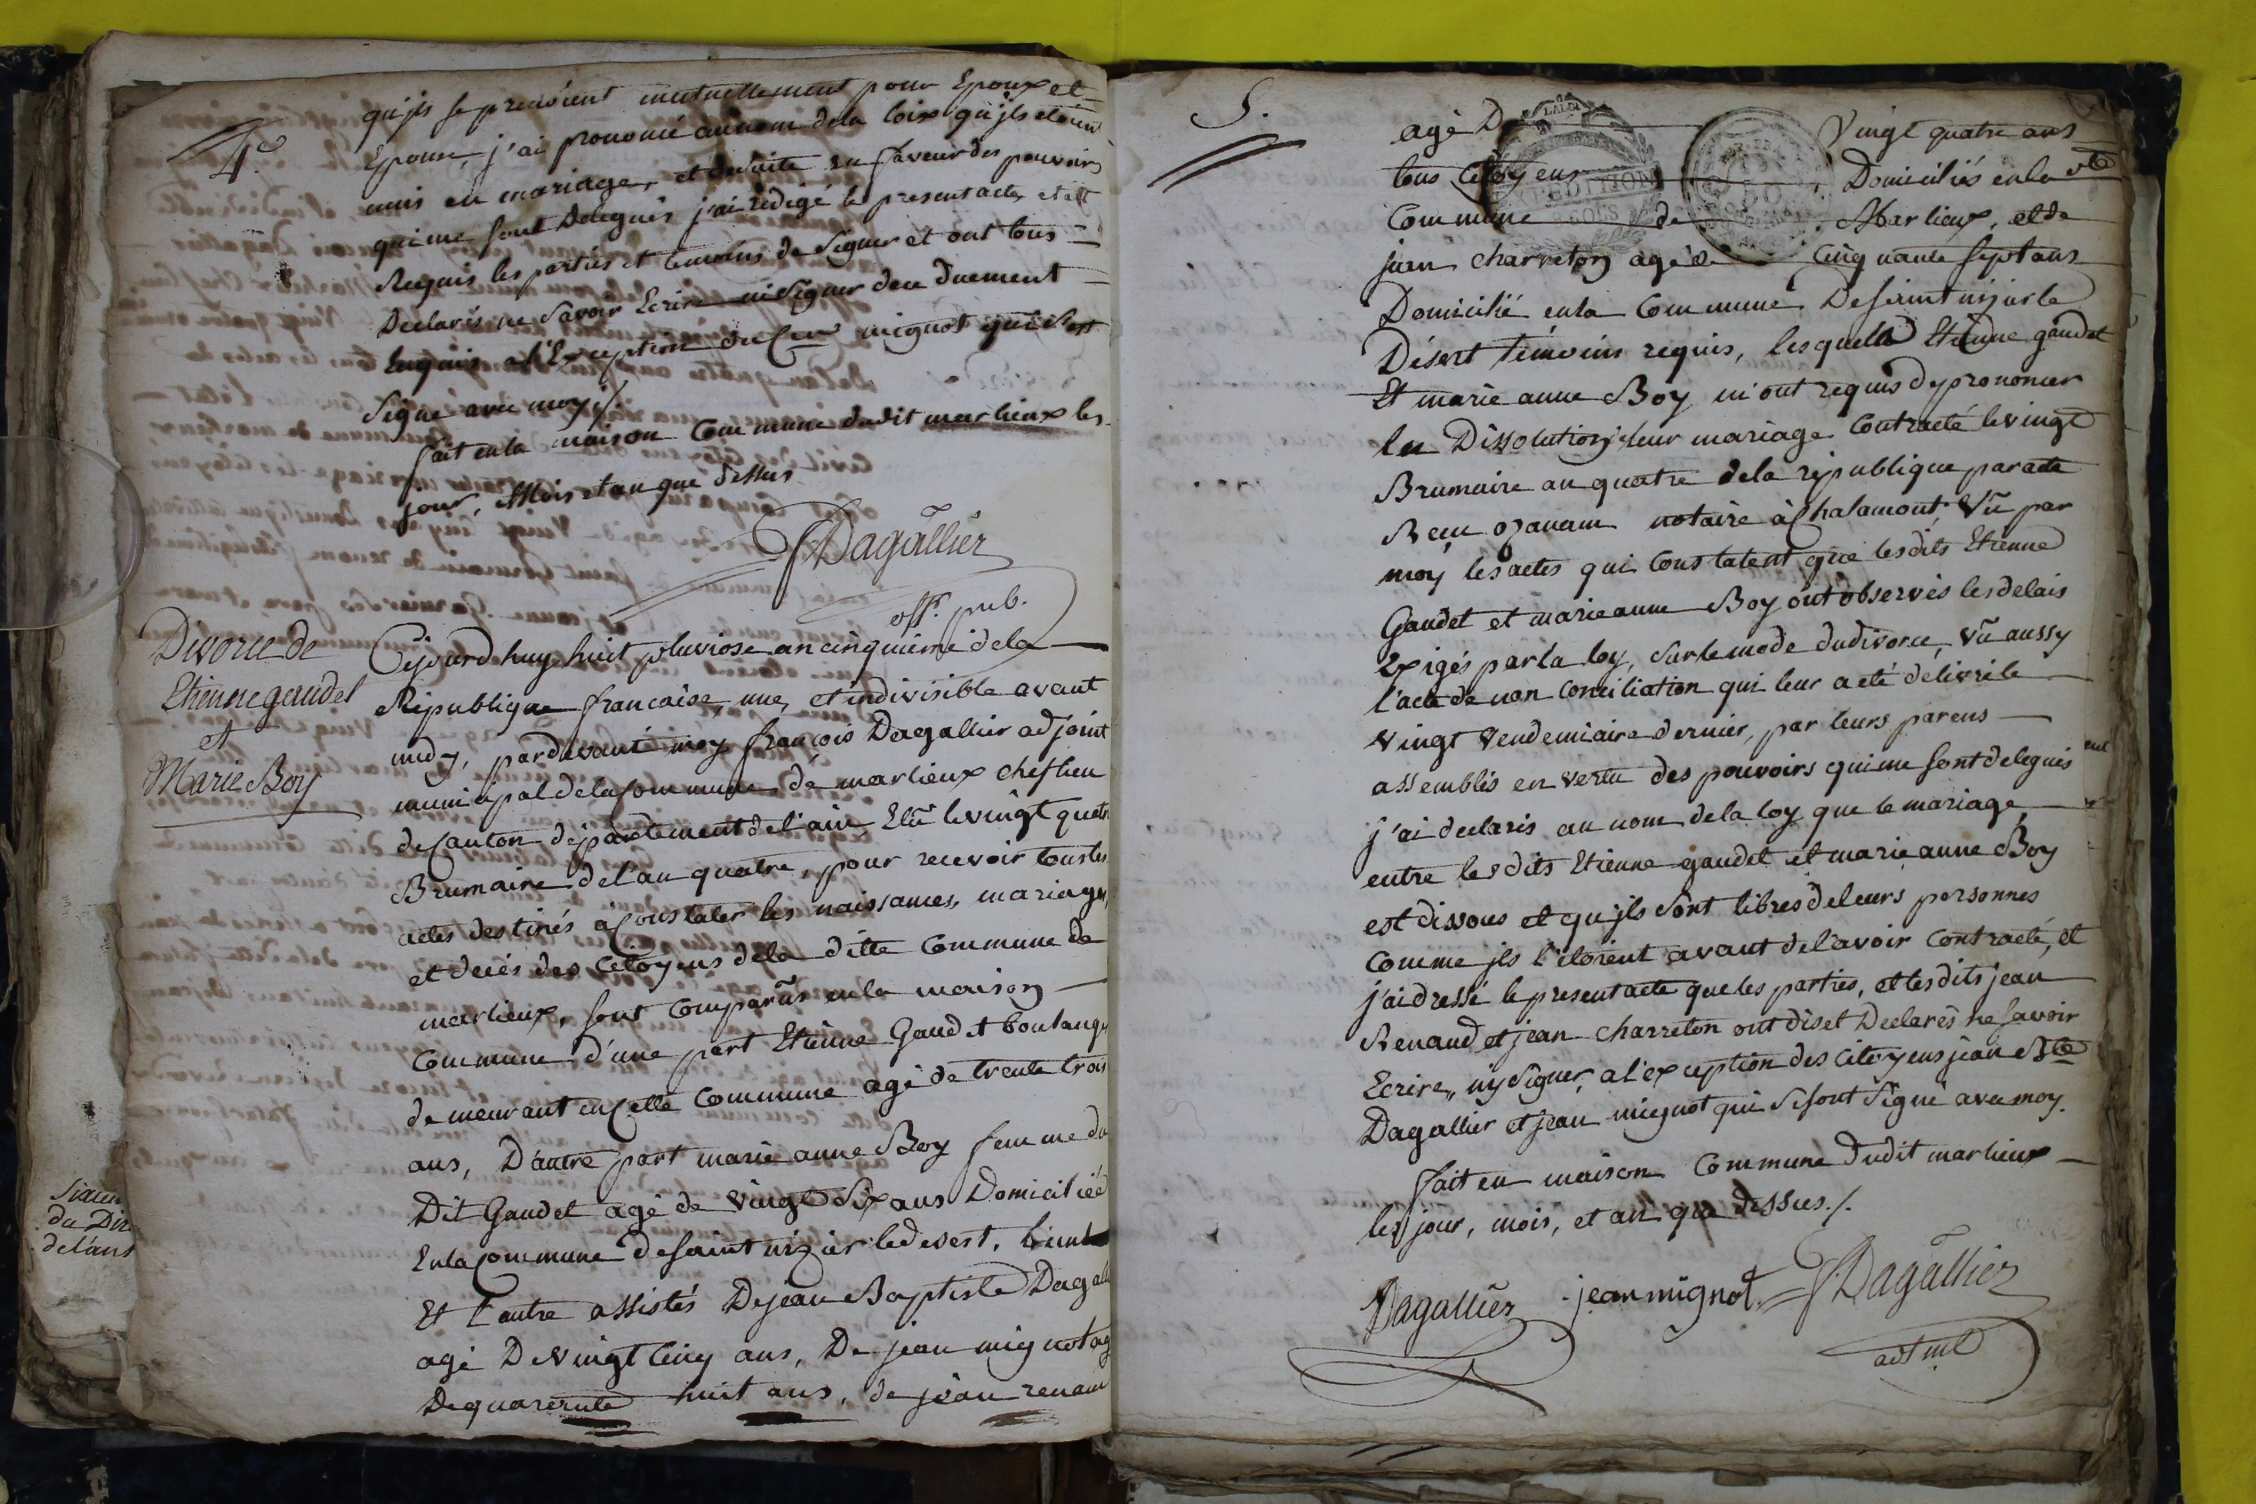 4e
qu'jls se prenoient mutuellement pour Epoux et
Epouse, j'ai prononcé au nom dela loix qu'jls etoient
unis en mariage, et ensuite en faveur des pouvoirs
qui me sont Délegués j'ai rédigé le present acte, et ait
Requis les parties et temoins de Signer et ont tous
Declarés ne Savoir Ecrire ni Signer de ce duement
Enquis a l'Exception du Cen mignot qui s'est
Signé avec moy ./.
fait en la maison Commune dudit marlieux les
jour, Mois et an que dessus
F Dagallier
off. pub.
Divorce de
Etienne gaudet
et
Marie Boy
Cejourd huy huit pluviose an cinquieme dela
République francaise, une, et indivisible avant
midy, pardevant moy françois Dagallier adjoint
municipal dela Commune de marlieux chef lieu
de Canton département de l'ain, Elû le vingt quatre
Brumaire de l'an quatre, pour recevoir tous les
actes destinés à Constater les naissances, mariages,
et decés des Citoyens dela ditte Commune de
marlieux, sont Comparûs en la maison
Commune d'une part Etienne Gaudet boulanger
demeurant en Cette Commune agé de trente trois
ans, D'autre part marie anne Boy femme du
Dit Gaudet agé de vingt Six ans Domiciliée
En la Commune de Saint nizier le desert, l'un
Et l'autre assistés De jean Baptiste Dagallier
agé De vingt Cinq ans, De jean mignot agé
De quarente huit ans, de jean renaud
Sixieme
du Dit
de l'ans
5.
agé De Vingt quatre ans
tous Citoyens Domiciliés en la dte
Commune de Marlieux, et de
jean charreton agé de Cinquante Sept ans
Domicilié en la Commune De Saint nizier le
Désert témoins requis, lesquels Etienne gaudet
Et marie anne Boy m'ont requis d'y prononcer
la Dissolution leur mariage Contracté le vingt
Brumaire an quatre dela république par acte
Recu ozanam notaire à Chalamont, Vû par
moy les actes qui Constatent que lesdits Etienne
Gaudet et marie anne Boy ont observés les delais
Exigés par la loy, Sur le mode du divorce, vû aussy
l'acte de non Conciliation qui leur a eté délivré le
vingt Vendemiaire dernier, par leurs parens
assemblés en vertu des pouvoirs qui me sont delegués
j'ai declarés au nom dela loy que le mariage
entre les dits Etienne gaudet et marie anne Boy
est dissous et qu'jls Sont libres de leurs personnes
Comme jls l'etoient avant de l'avoir Contracté, et
j'ai dressé le present acte que les parties, et lesdits jean
Renaud et jean charreton ont dis et Declarés ne Savoir
Ecrire, ny Signer, a l'exception des Citoyens jean Bte
Dagallier et jean mignot qui Se Sont Signé avec moy.
fait en maison Commune dudit marlieux
les jour, mois, et an que dessus ./.
Dagallier jean mignot F Dagallier
adt ml